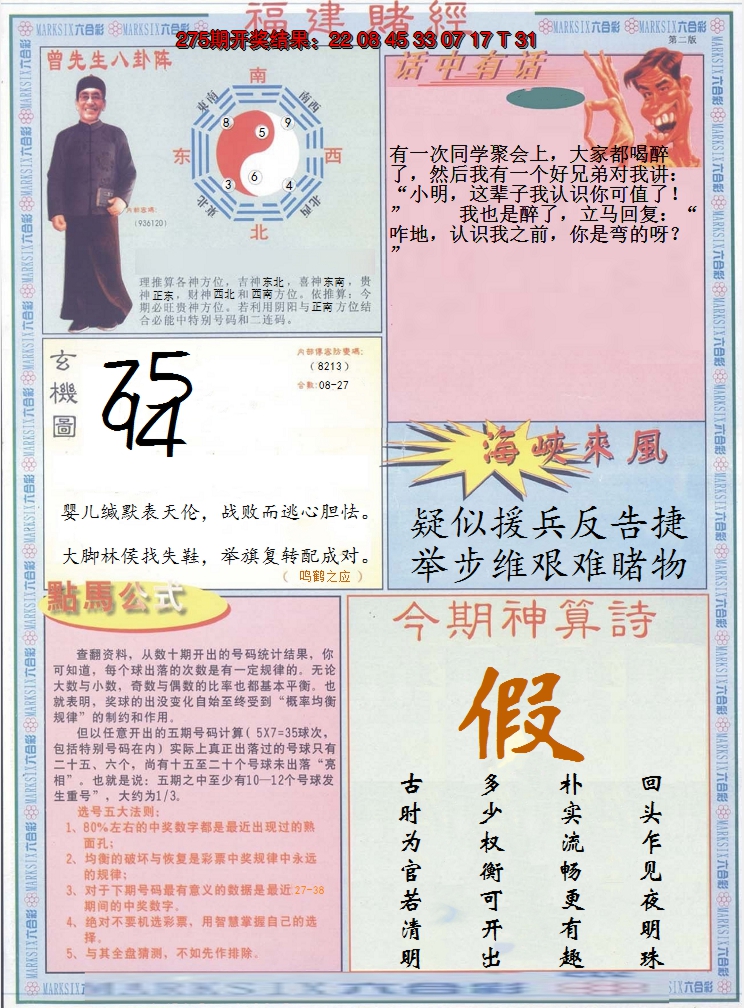 福建賭經
275期开奖结果：22 08 45 33 07 17 T 31
第二版
MARKSIX六合彩
曾先生八卦阵
南
东南
西南
8
9
5
东
西
6
3
4
东北
西北
北
内部密碼:
(936120)
理推算各神方位，吉神东北，喜神东南，贵
神正东，财神西北和西南方位。依推算：今
期必旺贵神方位。若利用阴阳与正南方位结
合必能中特别号码和二连码。
话中有话
有一次同学聚会上，大家都喝醉
了，然后我有一个好兄弟对我讲：
“小明，这辈子我认识你可值了！
”　　我也是醉了，立马回复：“
咋地，认识我之前，你是弯的呀？
”
玄機圖
75
94
(8213)
合数:08-27
婴儿缄默表天伦，战败而逃心胆怯。
大脚林侯找失鞋，举旗复转配成对。
（ 鸣鹤之应 ）
海峽來風
疑似援兵反告捷
举步维艰难睹物
點馬公式
查翻资料，从数十期开出的号码统计结果，你
可知道，每个球出落的次数是有一定规律的。无论
大数与小数，奇数与偶数的比率也都基本平衡。也
就表明，奖球的出没变化自始至终受到“概率均衡
规律”的制约和作用。
但以任意开出的五期号码计算( 5X7=35球次，
包括特别号码在内) 实际上真正出落过的号球只有
二十五、六个，尚有十五至二十个号球未出落“亮
相”。也就是说：五期之中至少有10—12个号球发
生重号”，大约为1/3。
选号五大法则：
1、80%左右的中奖数字都是最近出现过的熟
面孔；
2、均衡的破坏与恢复是彩票中奖规律中永远
的规律；
3、对于下期号码最有意义的数据是最近27-38
期间的中奖数字。
4、绝对不要机选彩票，用智慧掌握自己的选
择。
5、与其全盘猜测，不如先作排除。
今期神算詩
假
回头乍见夜明珠
朴实流畅更有趣
多少权衡可开出
古时为官若清明